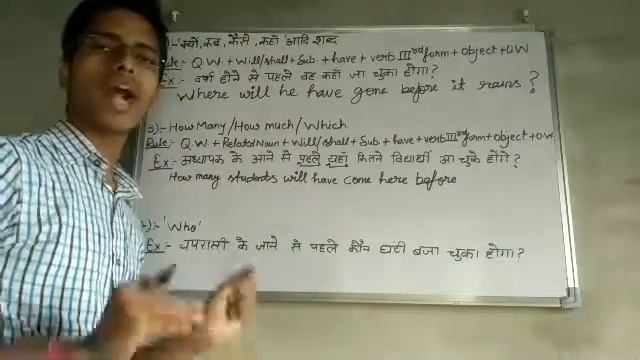 :- 'क्यों, कब, कैसे, कहाँ' आदि शब्द
Rule:- Q.W + Will/shall + Sub. + have + verb IIIrd form + object + OW
Ex:- वर्षा होने से पहले वह कहाँ जा चुका होगा?
Where will he have gone before it rains?
3):- How Many/How much/Which
Rule:- Q.W + Related Noun + Will/shall + Sub + have + verb IIIrd form + object + O.W.
Ex:- अध्यापक के आने से पहले यहाँ कितने विद्यार्थी आ चुके होंगे?
How many students will have come here before
):- 'Who'
Ex:- चपरासी के जाने से पहले कौन घंटी बजा चुका होगा?